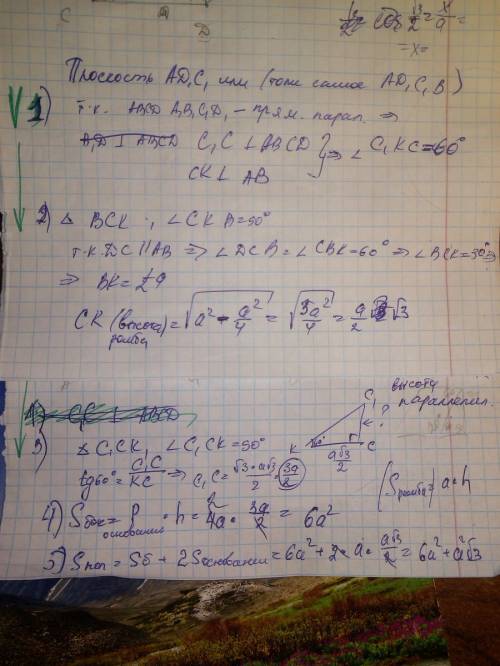 C
D
√3/2 = x/a =
= x =
Плоскость AD₁C₁ или (тоже самое AD₁C₁B)
1) т.к. ABCD A₁B₁C₁D₁ – прям. парал. ⇒
C₁C ⊥ ABCD
CK ⊥ AB } ⇒ ∠ C₁KC = 60°
2) △ BCK ∙, ∠CKB = 90°
т.к. DC || AB ⇒ ∠DCB = ∠CBK = 60° ⇒ ∠BCK = 30° ⇒
⇒ BK = ½a
CK (высота ромба) = √(a² - a²/4) = √(3a²/4) = a/2 √3
C₁C ⊥ ABCD
3) △ C₁CK, ∠C₁CK = 90°
tg60° = C₁C/KC ⇒ C₁C = √3 · a√3/2 = 3a/2
C₁
K
C
60°
a√3/2
?
высоту
параллелепип.
(Sромба = a·h
4) Sбок = P основания · h = 4a · 3a/2 = 6a²
5) Sпол = Sб + 2Sоснования = 6a² + 2 · a · a√3/2 = 6a² + a²√3